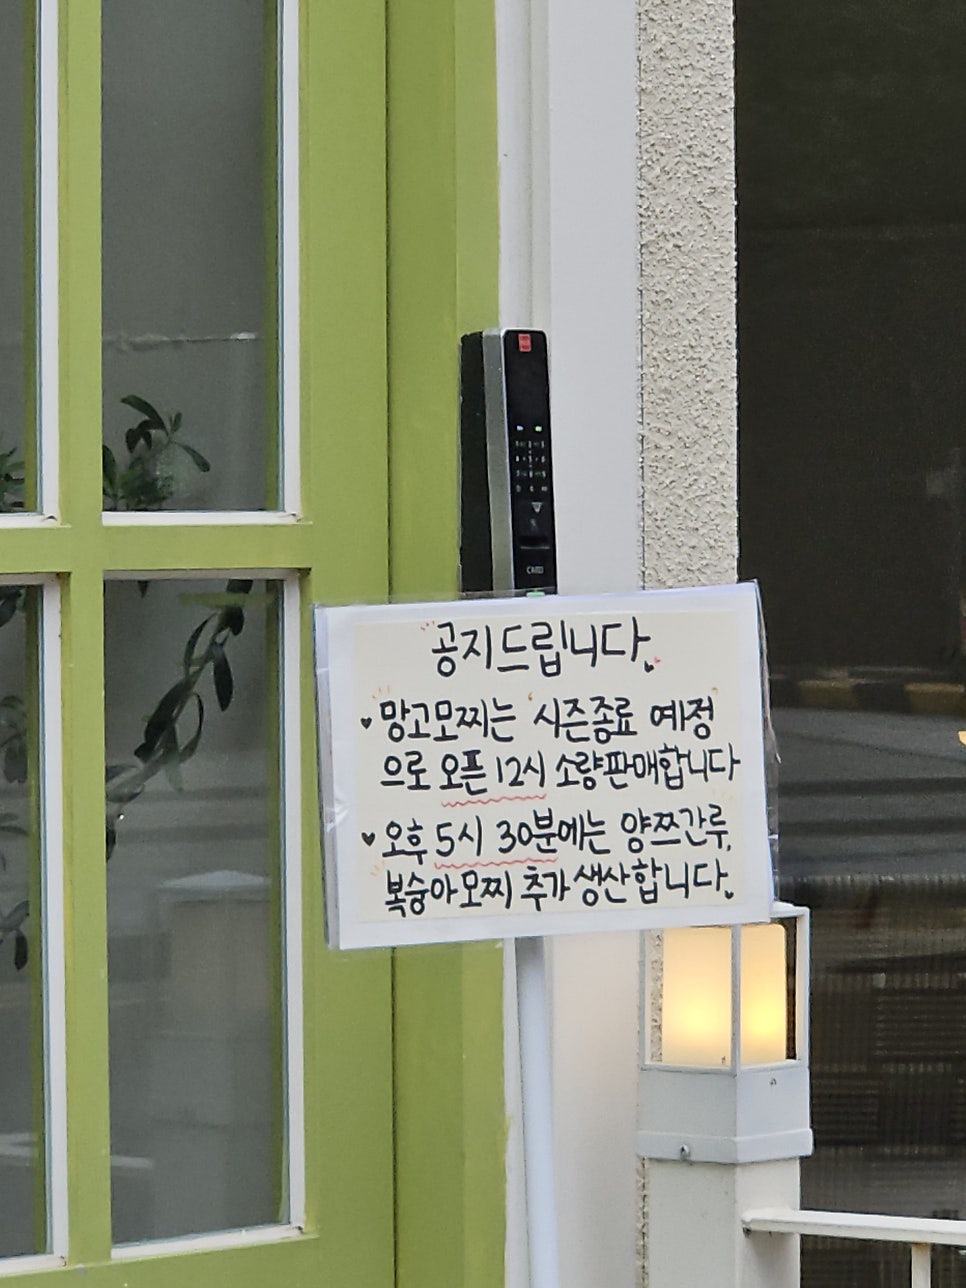 공지드립니다.
♥ 망고모찌는 '시즌종료 예정'
으로 오픈 12시 소량판매합니다
♥ 오후 5시 30분에는 양쯔간루,
복숭아모찌 추가 생산합니다.
CARD